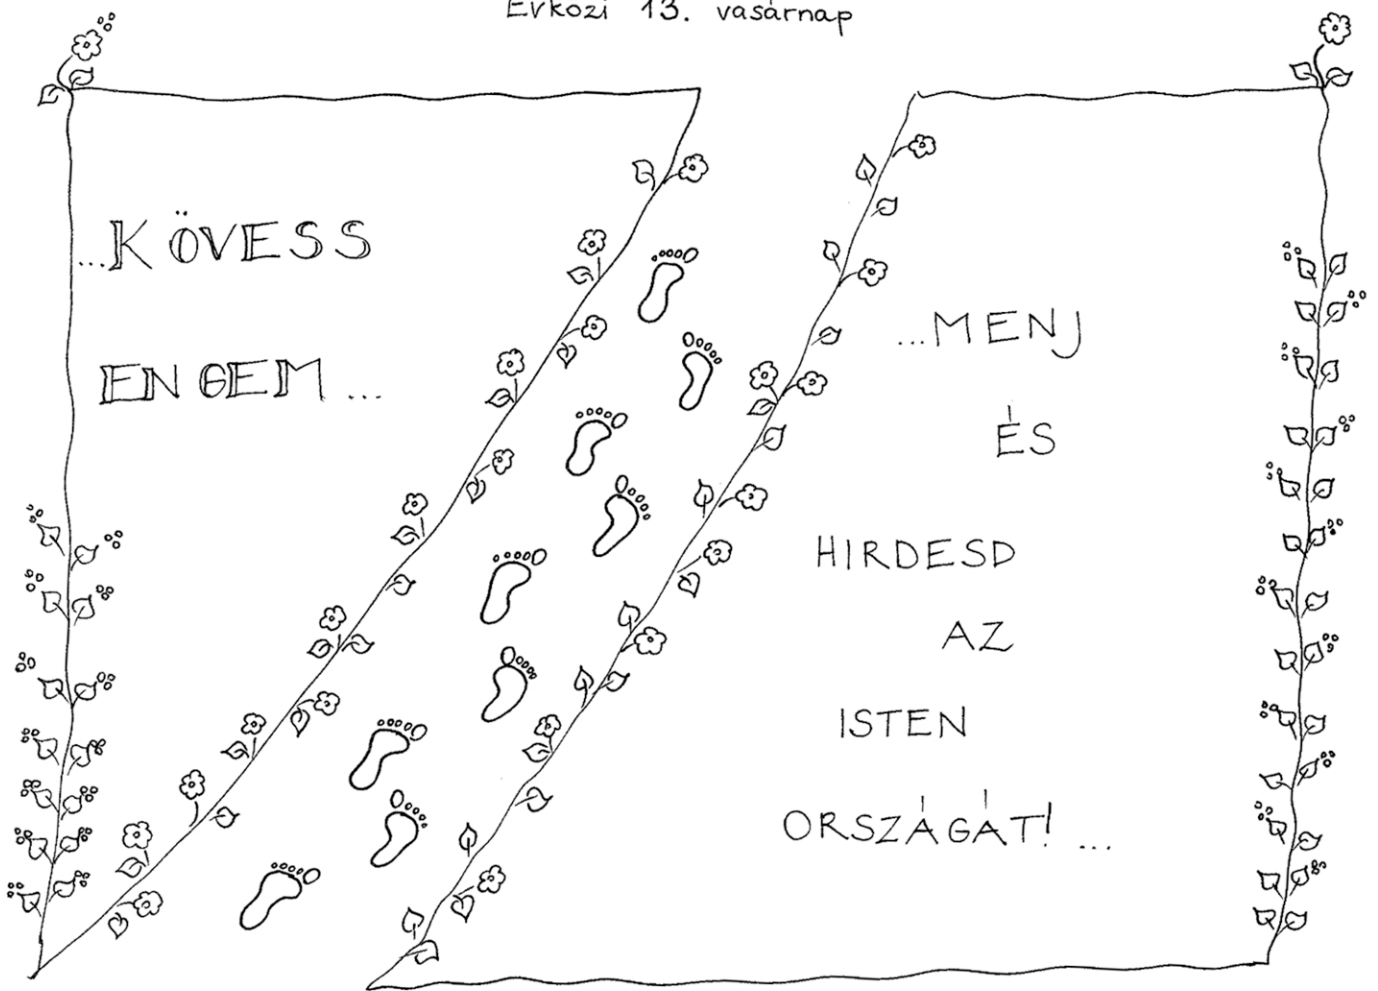 Évközi 13. vasárnap
...KÖVESS
ENGEM...
...MENJ
ÉS
HIRDESD
AZ
ISTEN
ORSZÁGÁT!...